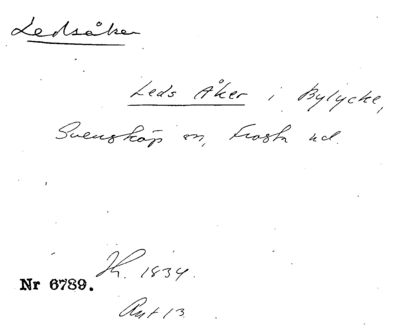 Ledsåker
Leds Åker i Bylycke,
Svensköp sn, Frosta hd.
Nr 6789.
1834.
Ant 13